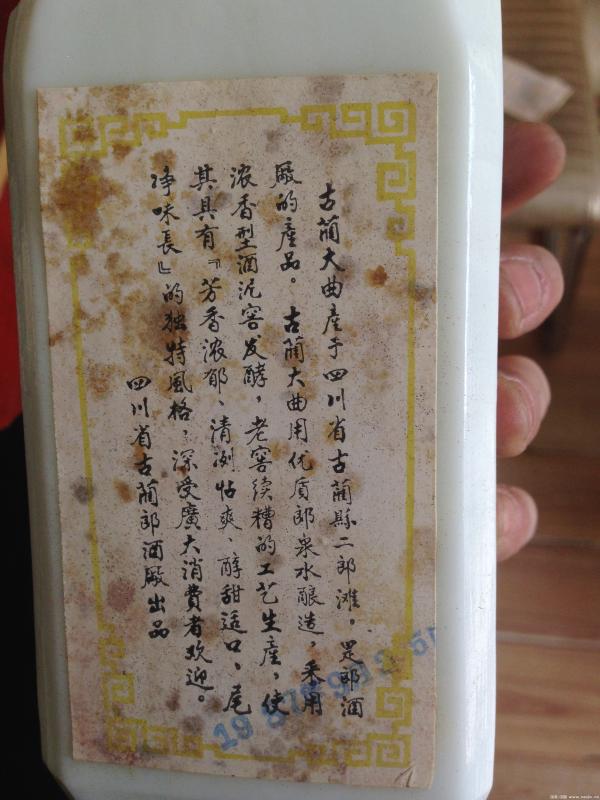 古蔺大曲產于四川省古蔺縣二郎滩，是郎酒
厰的產品。古蔺大曲用优质郎泉水酿造，采用
浓香型酒泥窖发酵，老窖续糟的工艺生產，使
其具有『芳香浓郁、清洌怗爽、醇甜适口、尾
净味長』的独特風格，深受廣大消費者欢迎。
四川省古蔺郎酒厰出品